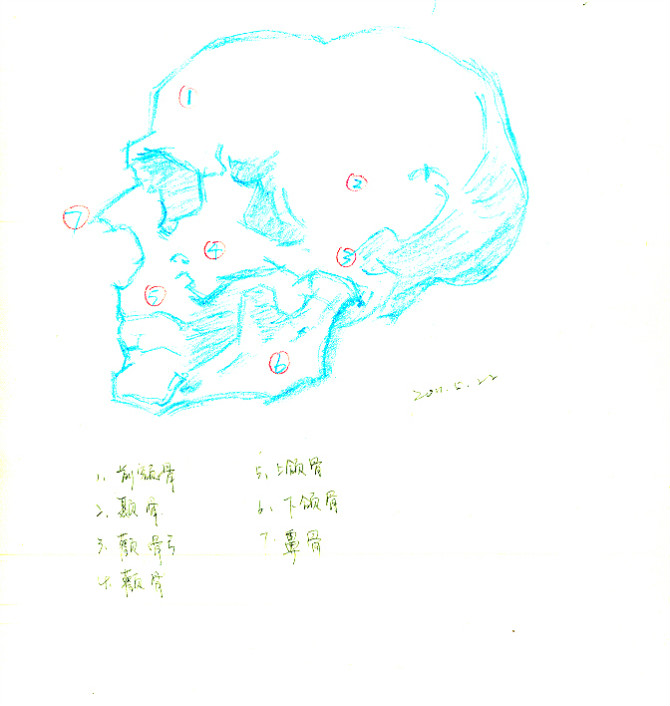 ①
②
⑦
④
③
⑤
⑥
2011.5.22
1. 前额骨
2. 颞骨
3. 颧骨弓
4. 颧骨
5. 上颌骨
6. 下颌骨
7. 鼻骨